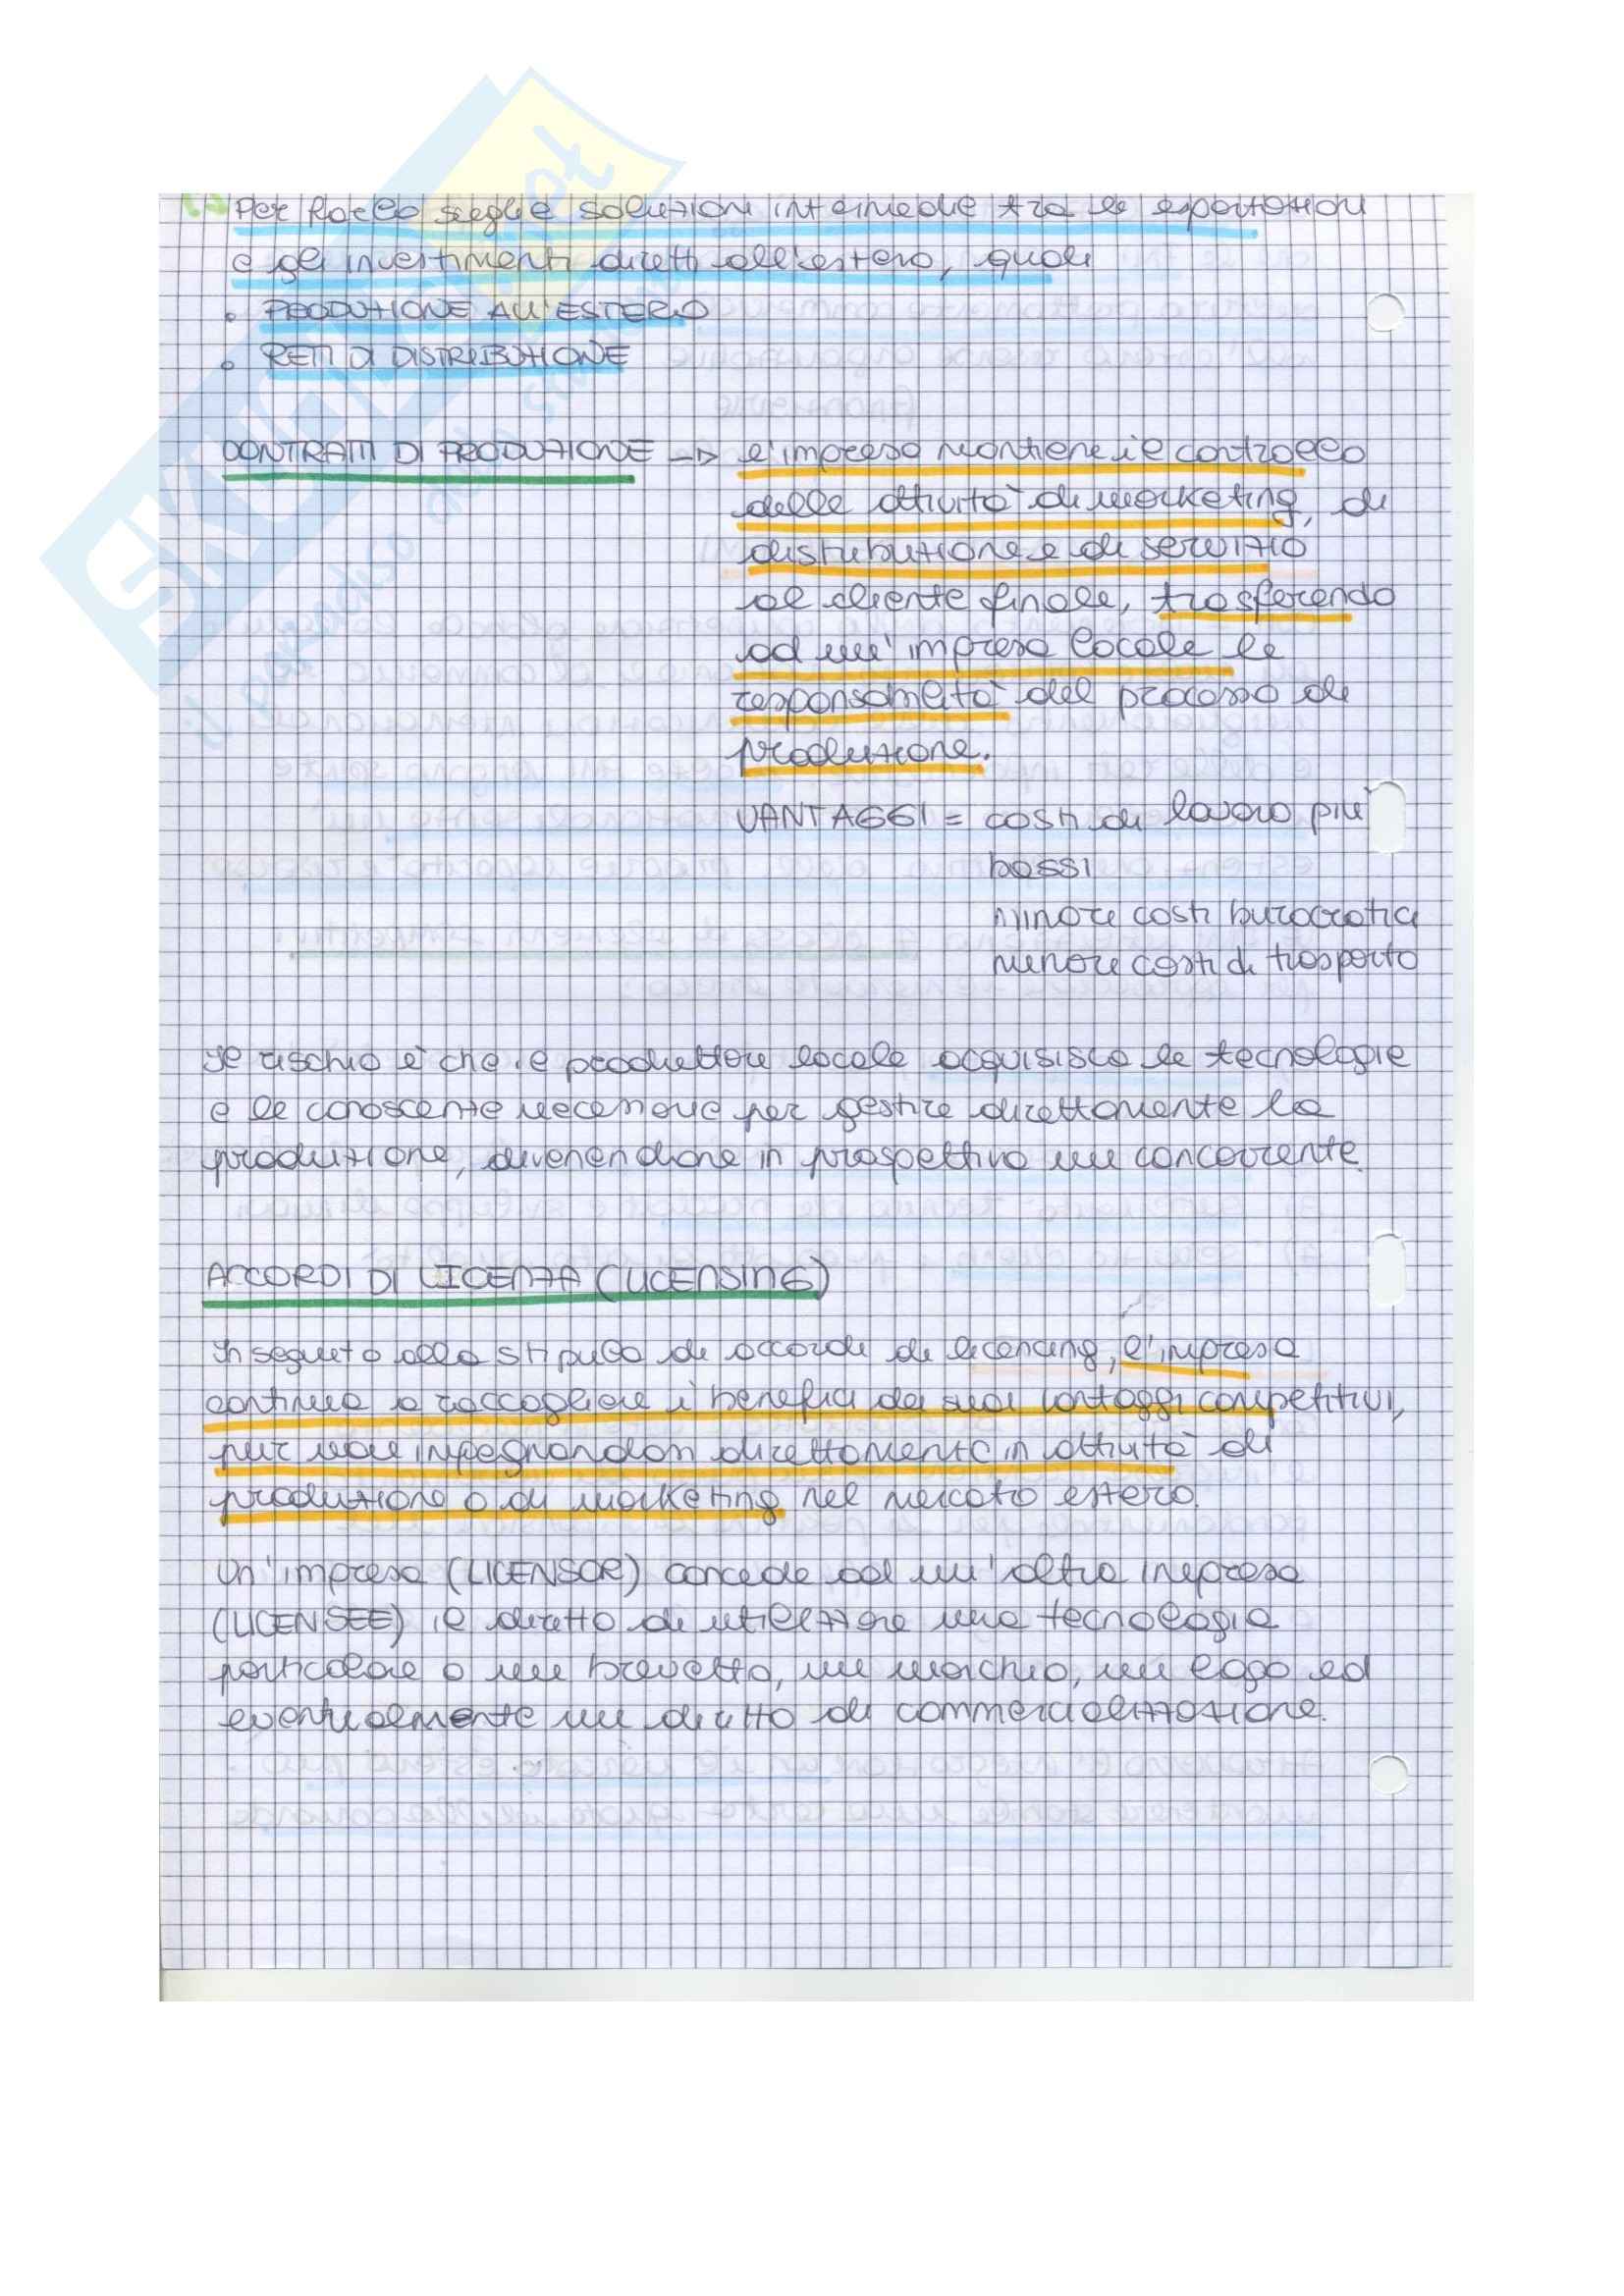 Per farlo sceglie soluzioni intermedie tra le esportazioni
e gli investimenti diretti all'estero, quali
• PRODUZIONE ALL'ESTERO
• RETI DI DISTRIBUZIONE
CONTRATTI DI PRODUZIONE → l'impresa mantiene il controllo
delle attività di marketing, di
distribuzione e di servizio
al cliente finale, trasferendo
ad un'impresa locale la
responsabilità del processo di
produzione.
VANTAGGI = costi di lavoro più
bassi
minori costi burocratici
minori costi di trasporto
Il rischio è che il produttore locale acquisisca le tecnologie
e le conoscenze necessarie per gestire direttamente la
produzione, divenendone in prospettiva un concorrente.
ACCORDI DI LICENZA (LICENSING)
In seguito alla stipula di accordi di licencing, l'impresa
continua a raccogliere i benefici dei suoi vantaggi competitivi,
pur non impegnandosi direttamente in attività di
produzione o di marketing nel mercato estero.
Un'impresa (LICENSOR) concede ad un'altra impresa
(LICENSEE) il diritto di utilizzare una tecnologia
particolare o un brevetto, un marchio, un logo ed
eventualmente un diritto di commercializzazione.
SKUOLA.net
il paradiso dello studente